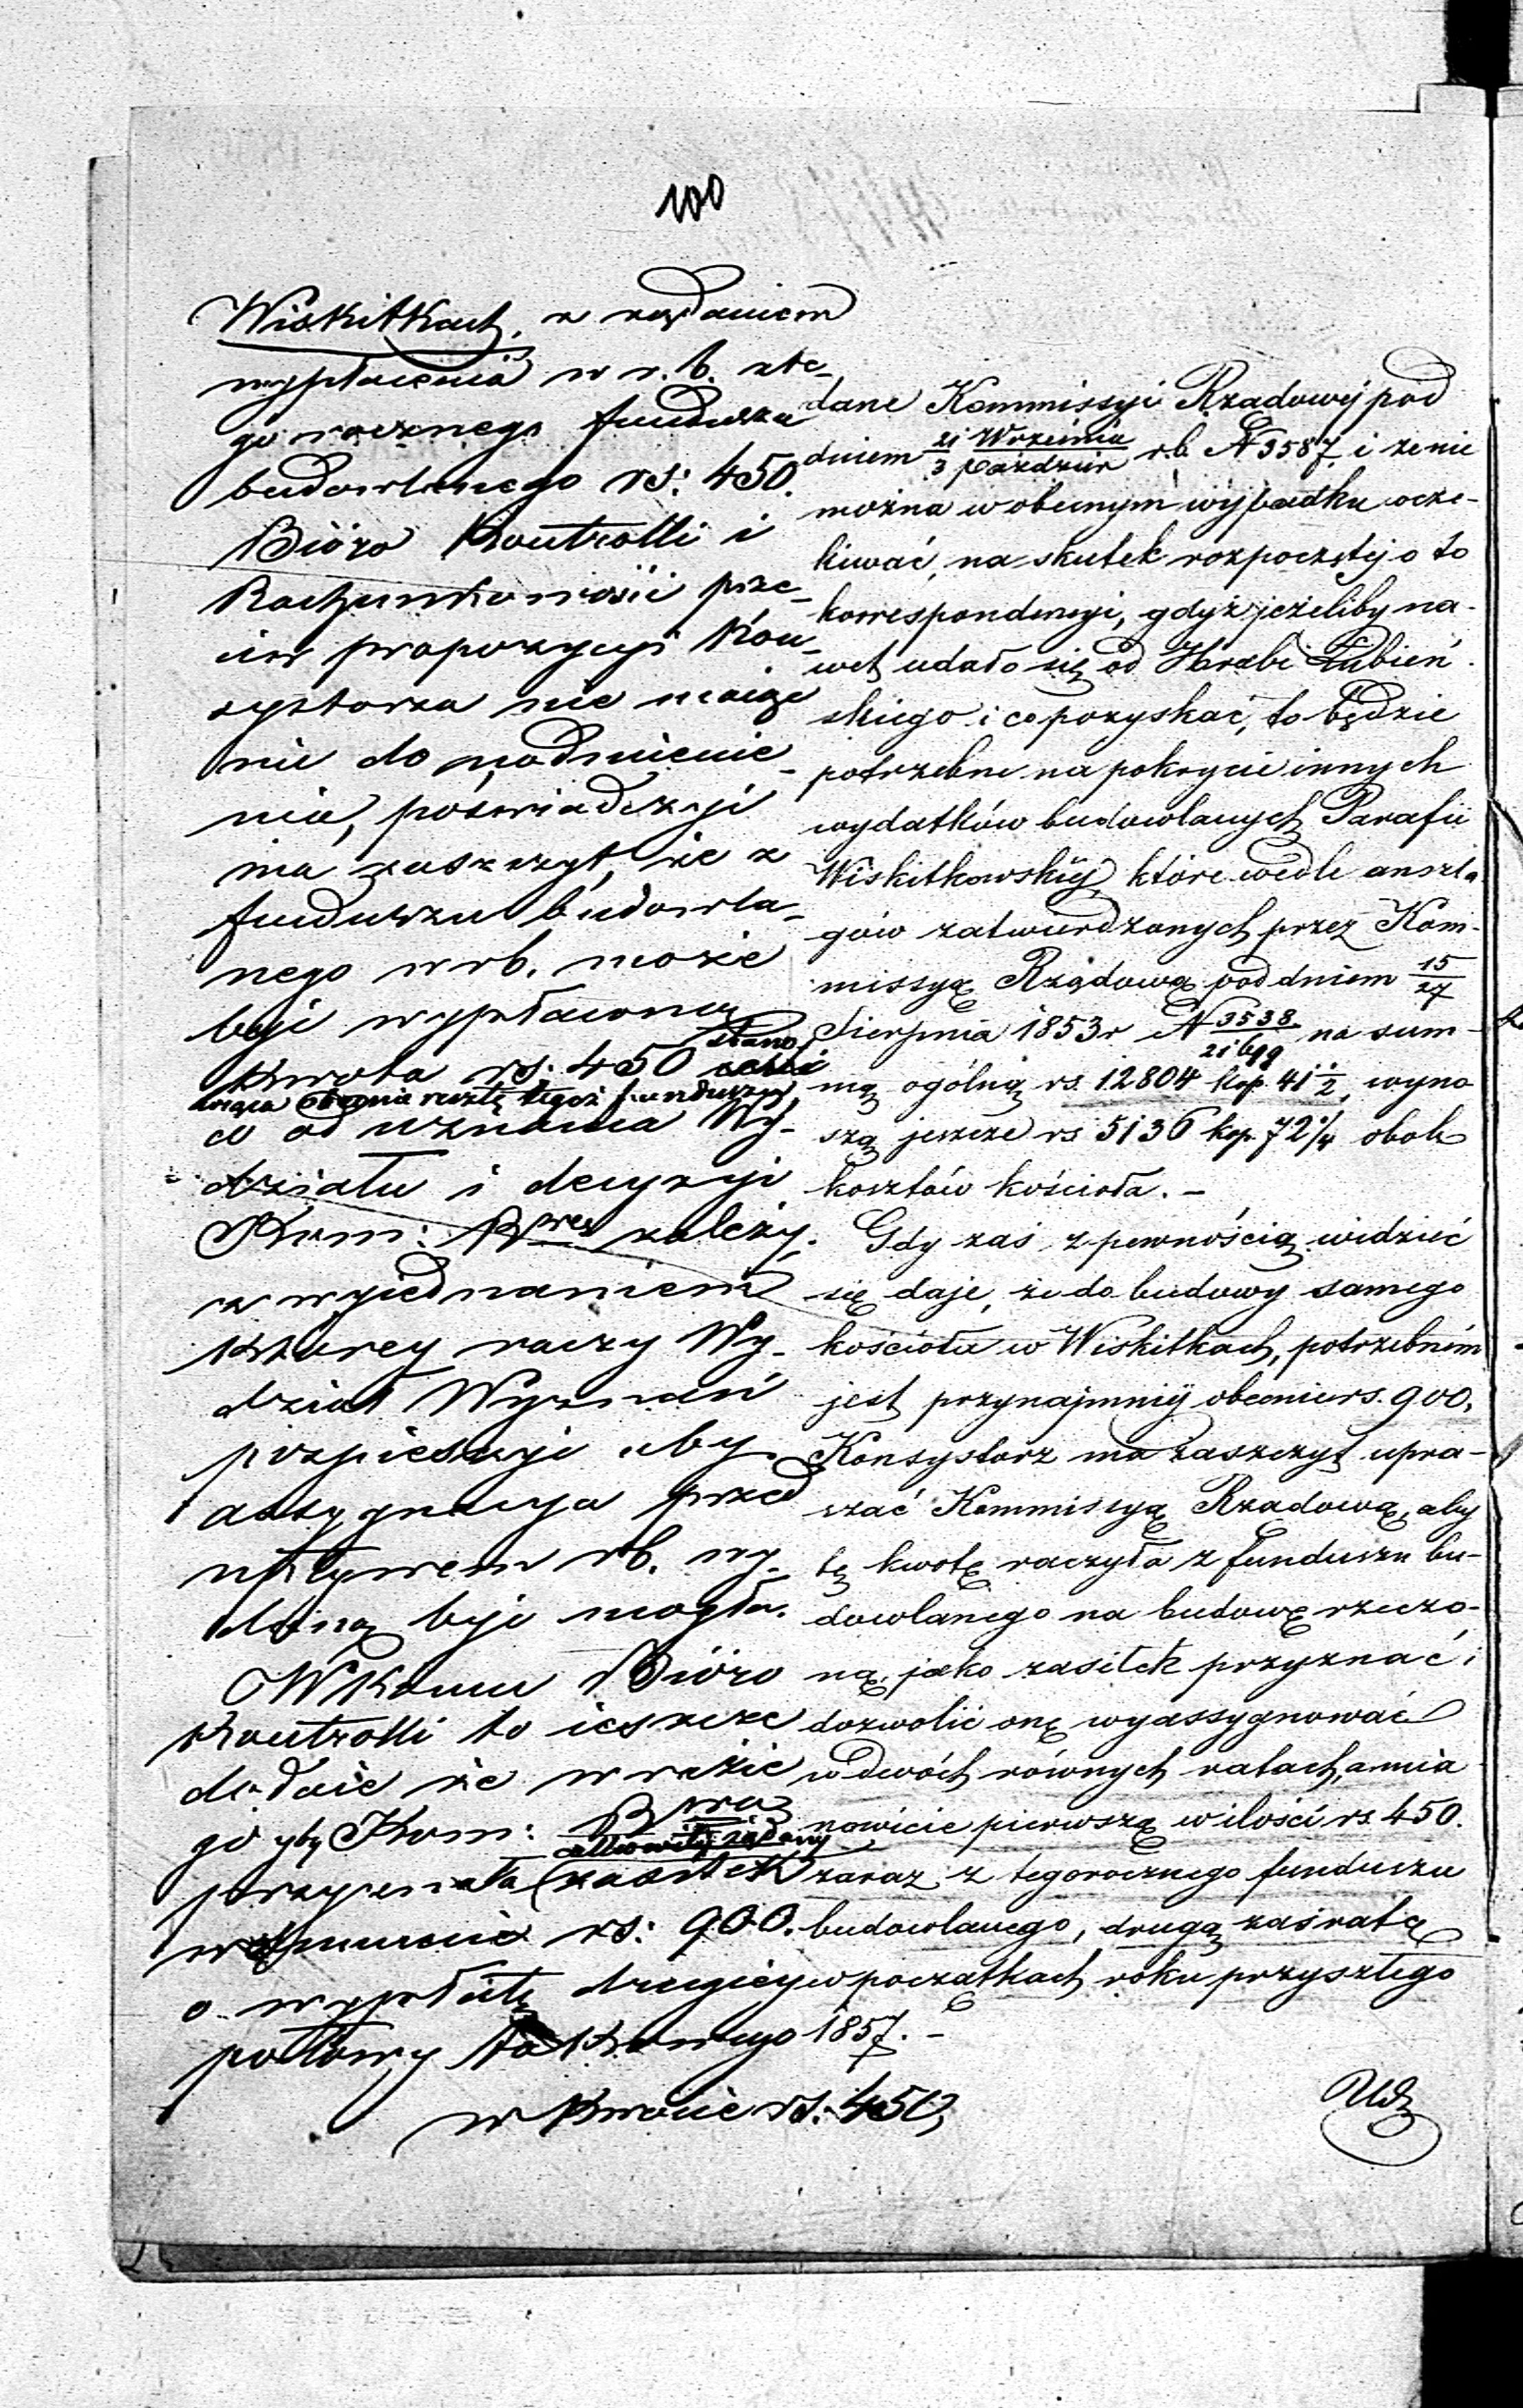 100
Wiskitkach, z żądaniem
wypłacenia w r. b. z te-
go rocznego funduszu
budowlanego rs: 450.
Bióro Kontrolli i
Rachunkowości prze-
ciw propozycyi Kon-
systorza nie maiąc
nic do nadmienie-
nia, poświadczyć
ma zaszczyt, że z
funduszu budowla-
nego w rb. może
być wypłaconą
kwota rs. 450 stano-
wiąca obecnie resztę tegoż funduszu,
co od uznania Wy-
działu i decyzyi
Kom: Rząd zależy,
z wyiednaniem
którey raczy Wy-
dział Wyznań
pospieszyć aby
assygnacya przed
upływem rb. wy-
daną być mogła.
W końcu Bióro
Kontrolli to ieszcze
dodaie że w razie
gdyby Kom: Rząd
przyznała całkowity żądany zasiłek
w summie rs: 900.
o wypłatę drugiey
połowy takowego
w kwocie rs: 450,
dane Kommissyi Rządowej pod
dniem 21 Września / 3 Paździer rb. N 3587. i że nie
można w obecnym wypadku ocze-
kiwać, na skutek rozpoczętej o to
korrespondencyi, gdyż jeżeliby na-
wet udało się od Hrabi Łubień-
skiego i co pozyskać, to będzie
potrzebne na pokrycie innych
wydatków budowlanych Parafii
Wiskitkowskiej, które wedle anszla-
gów zatwierdzonych przez Kom-
missyą Rządową pod dniem 15/27
Sierpnia 1853 r N 3538/21699 na sum-
mę ogólną rs. 12804 kop. 41 1/2, wyno-
szą jeszcze rs 5136 kop. 72 1/4 obok
kosztów kościoła. –
Gdy zaś z pewnością widzieć
się daje, że do budowy samego
kościoła w Wiskitkach, potrzebném
jest przynajmniej obecnie rs. 900,
Konsystorz ma zaszczyt upra-
szać Kommissyą Rządową, aby
tę kwotę raczyła z funduszu bu-
dowlanego na budowę rzeczo-
ną, jako zasiłek przyznać i
dozwolić onę wyassygnować
w dwóch równych ratach, a mia-
nowicie pierwszą w ilości rs. 450.
zaraz z tegorocznego funduszu
budowlanego, drugą zaś ratę
w początkach roku przyszłego
1857. –